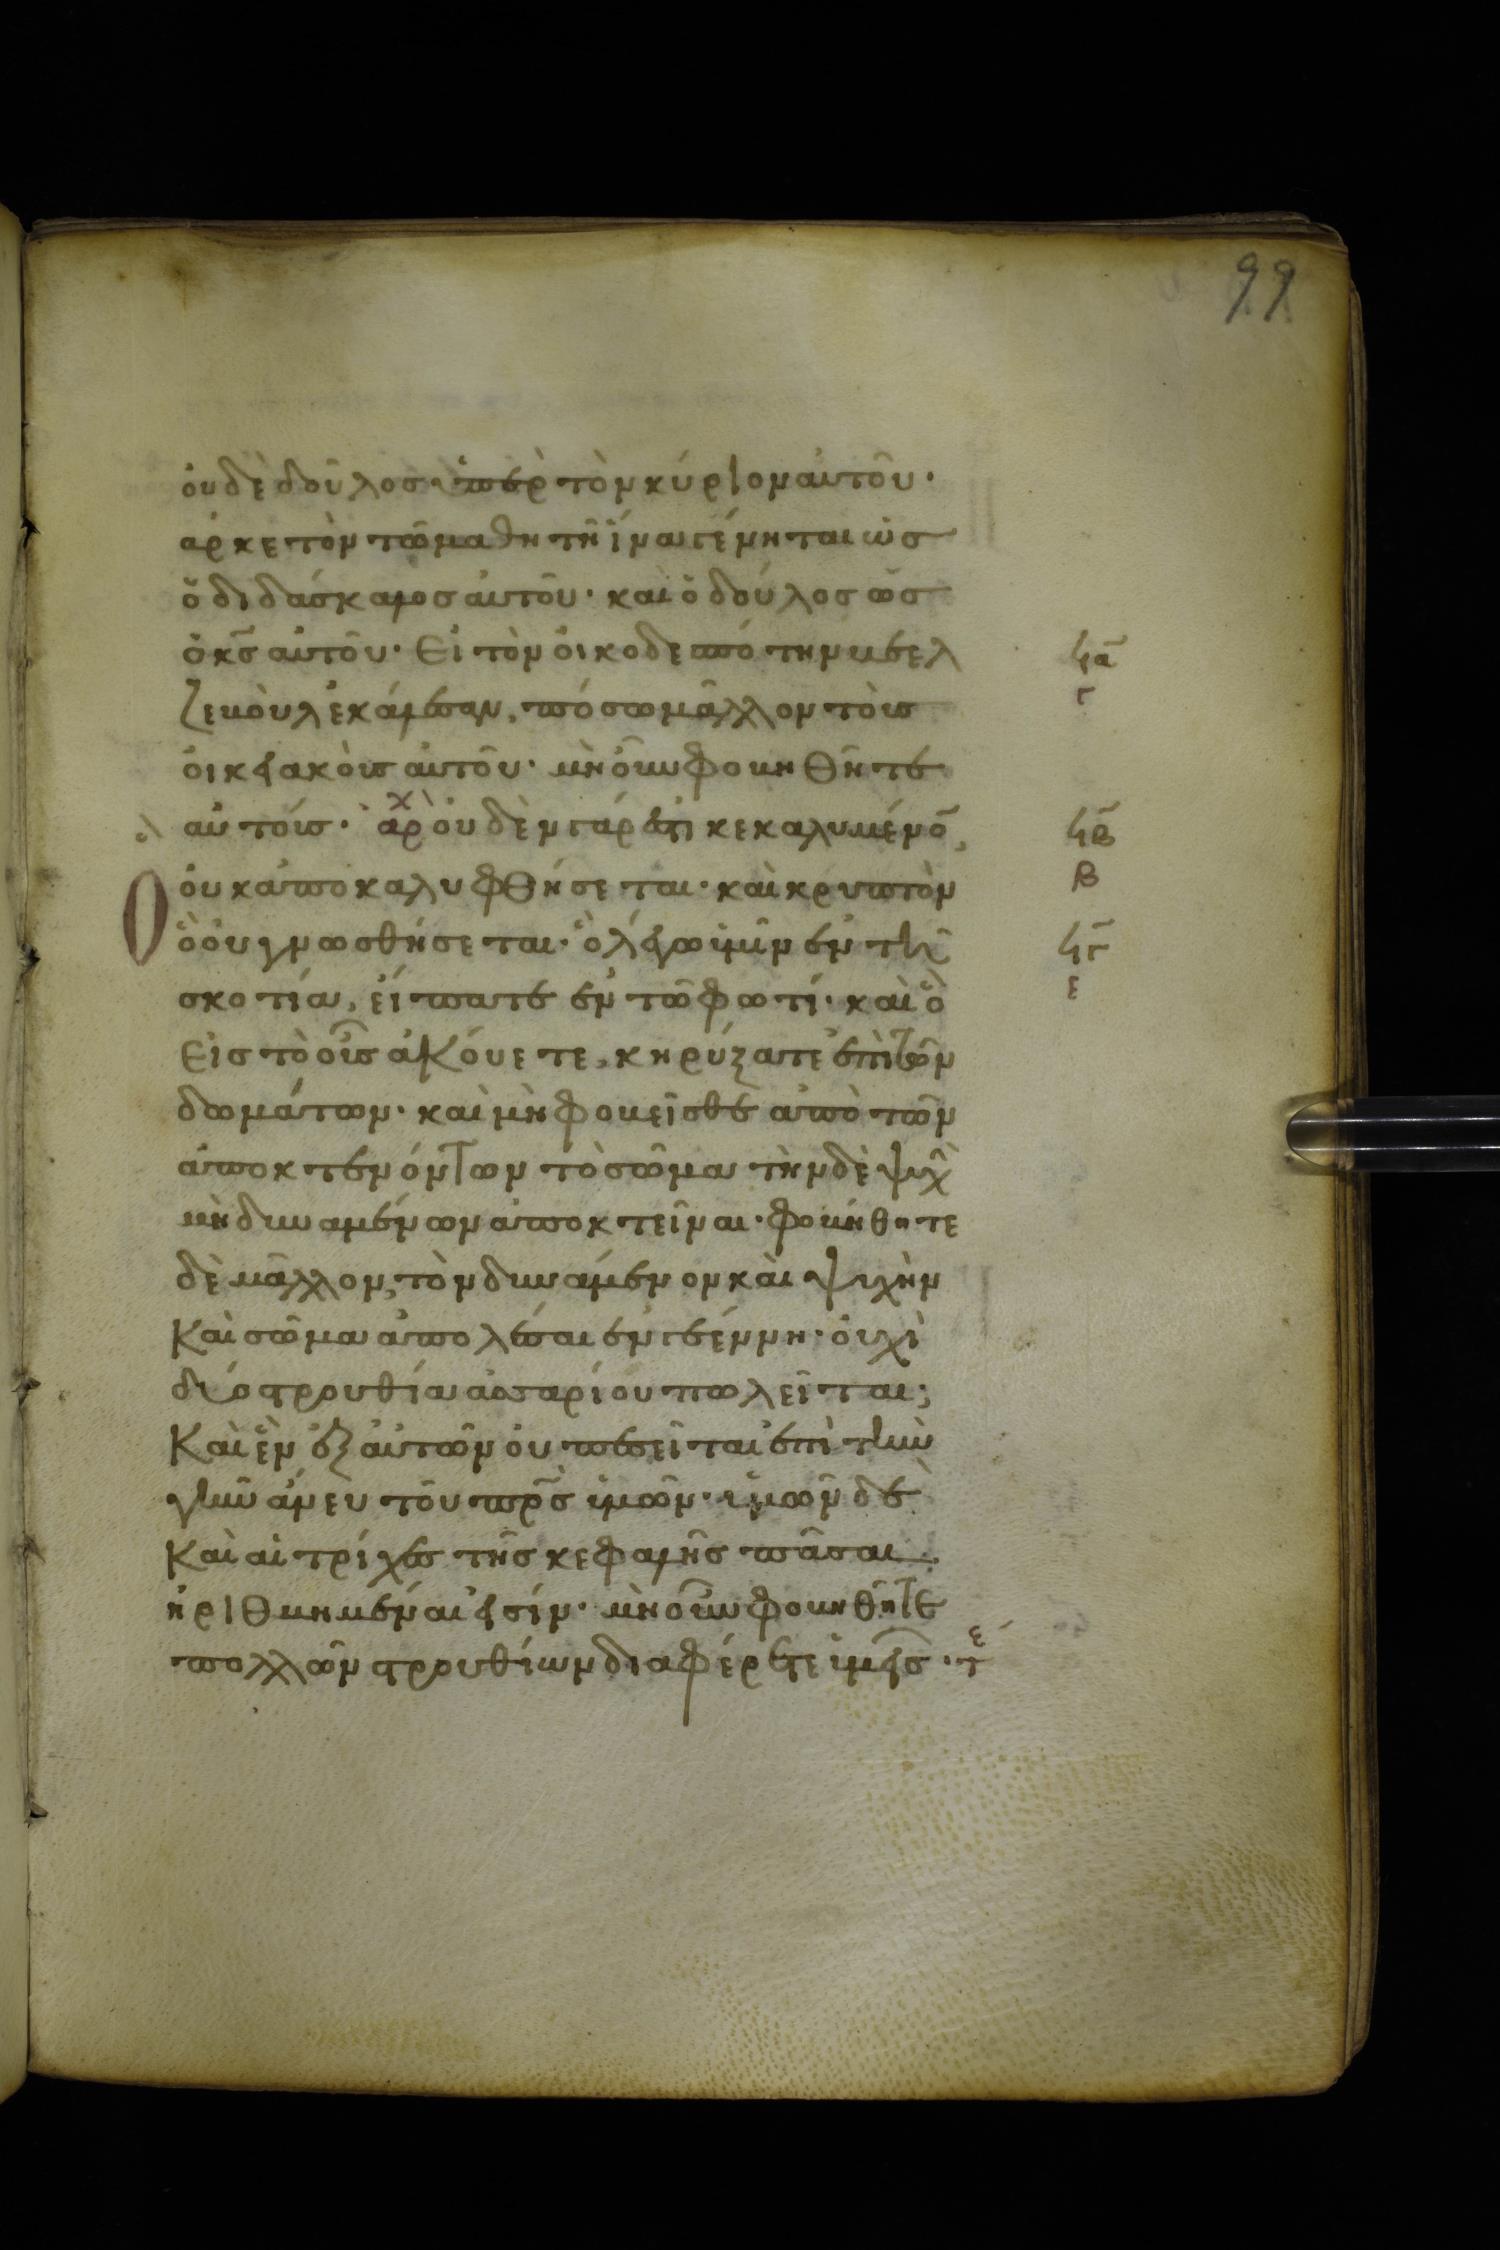 99
ὀυδὲ δοῦλοσ ὑπὲρ τὸν κύριον αὐτοῦ·
αρκετὸν τῶ μαθητῆ ἵνα γένηται ὡσ
ὁ διδάσκαλοσ αὐτοῦ· καὶ ὁ δούλοσ ὡσ
ὁ κσ̄ αὐτοῦ· Εἰ τὸν ὀικοδεπότην βεελ
ζεβοὺλ ἐκάλεσαν, πόσω μᾶλλον τοὺσ
ὀικειακοὺσ αὐτοῦ· μὴ οὖν φοβηθῆτε
αὐτούσ· ἀρχ ὀυδὲν γάρ ἐστι κεκαλυμένον̄,
ὀυκ ἀποκαλυφθήσεται· καὶ κρυπτὸν
ὃ ὀυ γνωσθήσεται· ὃ λέγω ὑμῖν ἐν τῆ
σκοτία, εἴπατε ἐν τῶ φωτί· καὶ ὃ
Εἰσ τὸ οὖσ ἀκόυετε, κηρύξατε ἐπὶ τῶν
δωμάτων· καὶ μὴ φοβεῖσθε ἀπὸ τῶν
ἀποκτενόντων τὸ σῶμα τὴν δὲ ψυχὴ
μὴ δυναμένων ἀποκτεῖναι· φοβήθητε
δὲ μᾶλλον, τὸν δυνάμενον καὶ ψυχὴν
Καὶ σῶμα ἀπολέσαι ἐν γεέννη· ὀυχὶ
δύο στρουθία ἀσσαρίου πωλεῖται;
Καὶ ἓν ἐξ αὐτῶν ὀυ πεσεῖται ἐπὶ τὴν
γῆν ἄνευ τοῦ πρ̄σ ὑμῶν· ὑμῶν δὲ
Καὶ αἱ τρίχεσ τῆσ κεφαλῆσ πᾶσαι
ἠριθμημέναι εἰσίν· μὴ οὖν φοβηθῆτε
πολλῶν στρουθίων διαφέρετε ὑμεῖσ· τε
ϟα̅
γ
ϟβ̅
β
ϟγ̅
ε